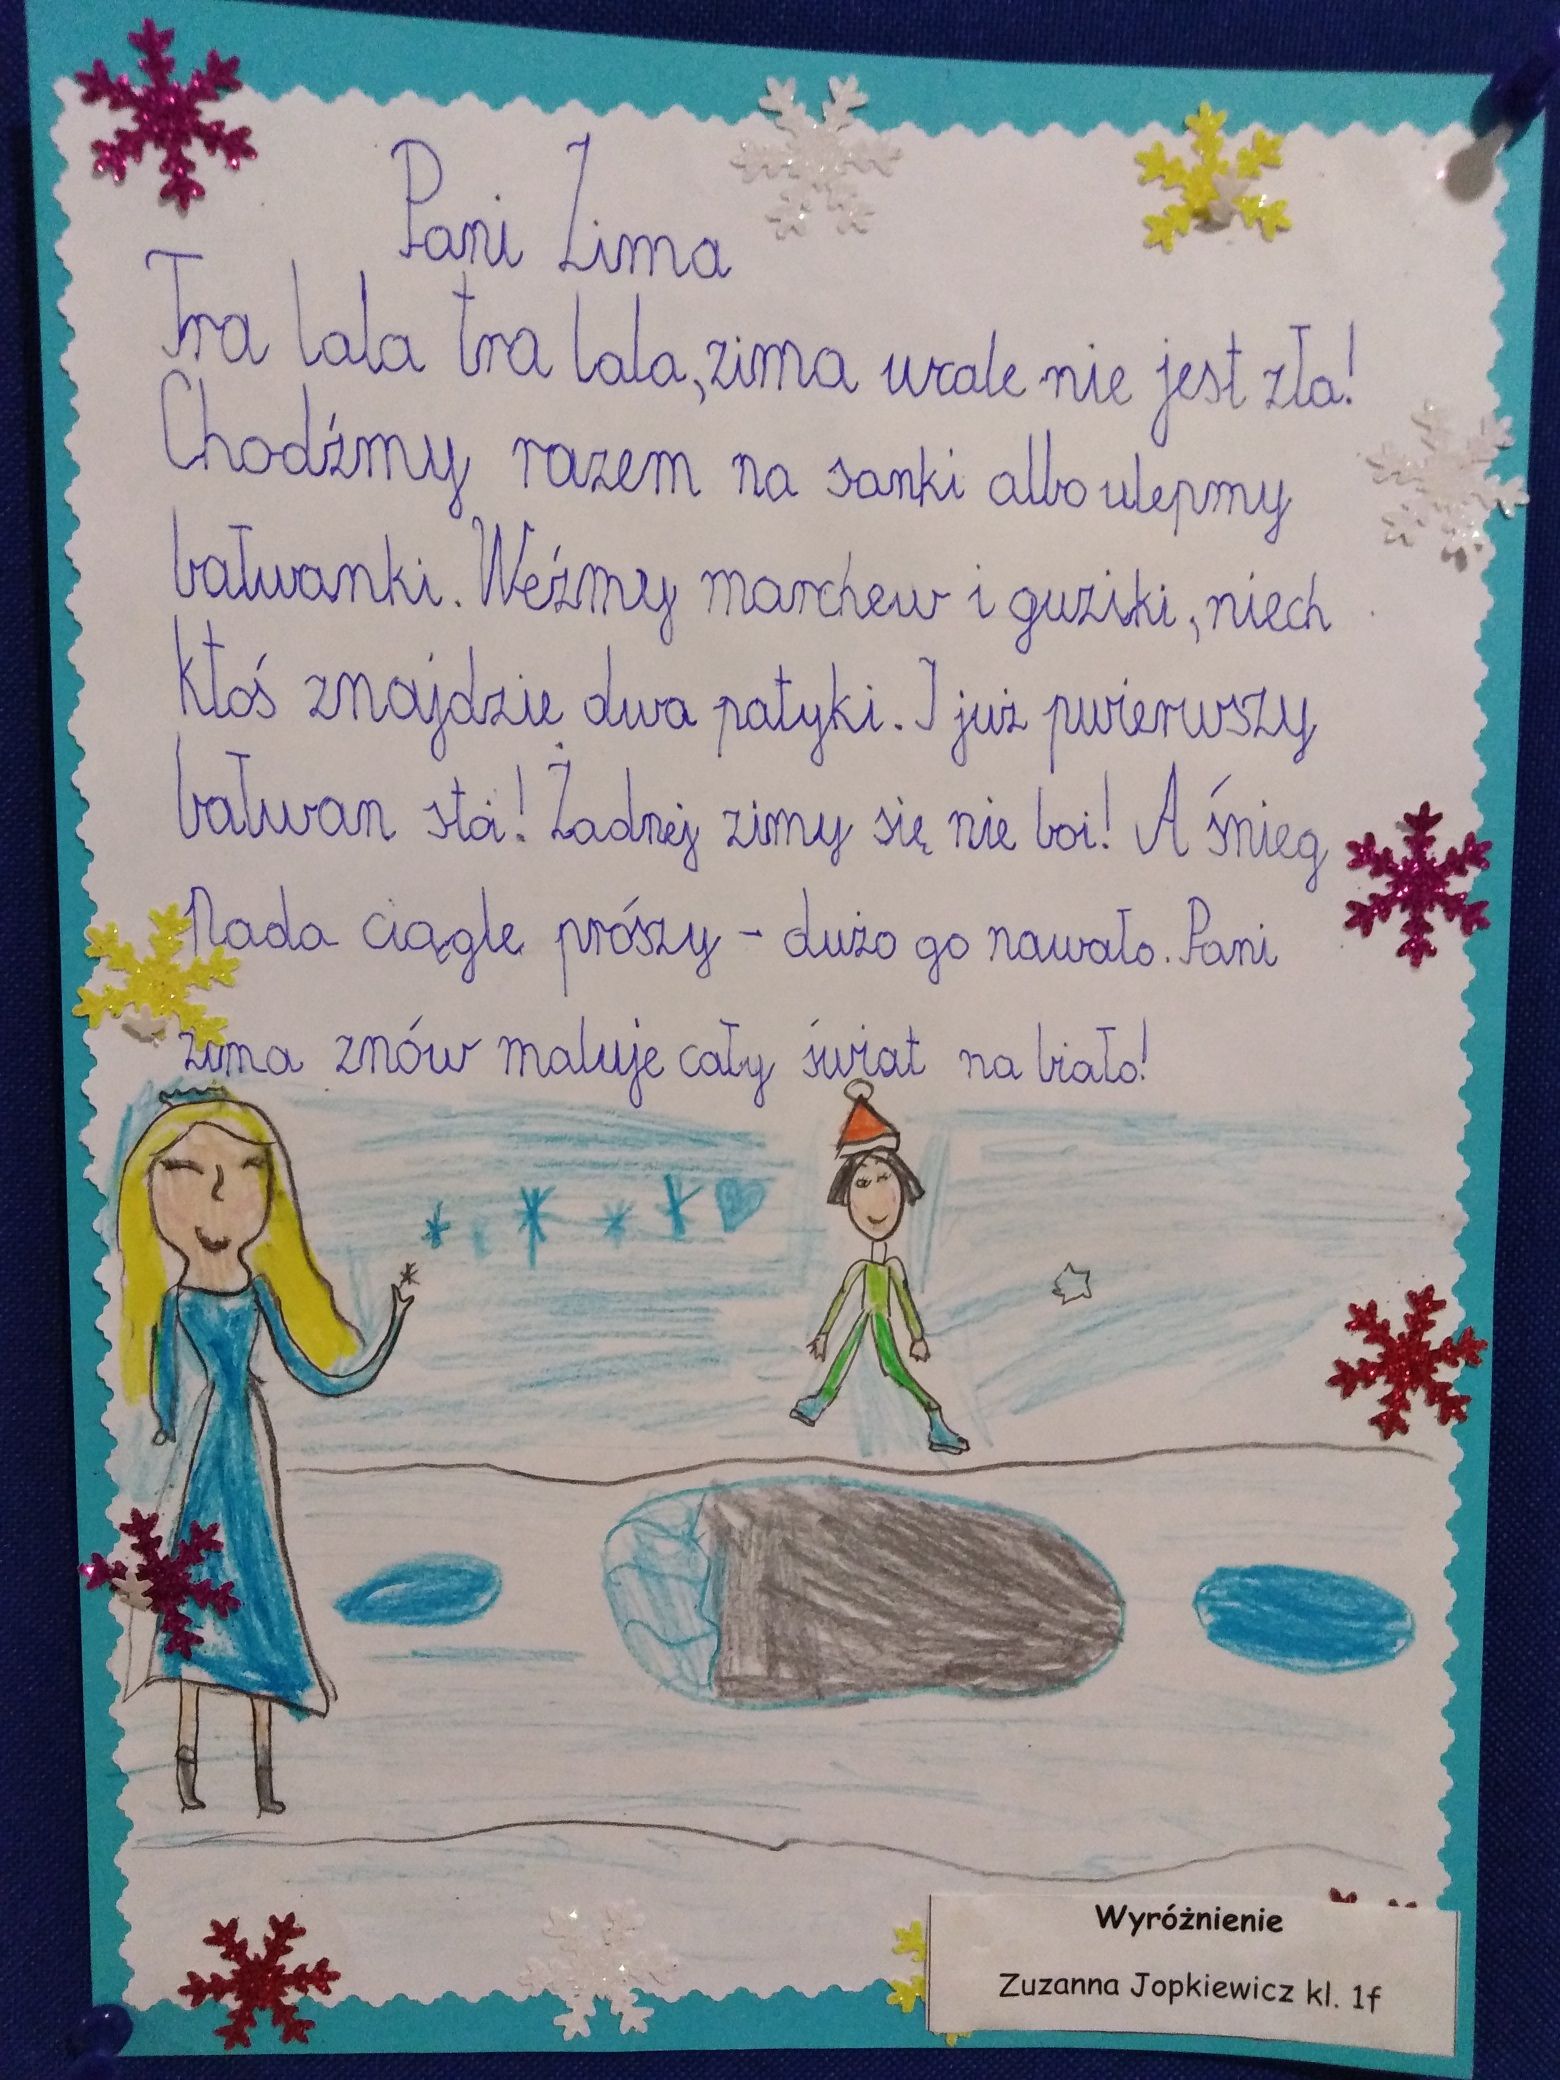 Pani Zima
Tra lala tra lala, zima wcale nie jest zła!
Chodźmy razem na sanki albo ulepmy
bałwanki. Weźmy marchew i guziki, niech
ktoś znajdzie dwa patyki. I już pwierwszy
bałwan stoi! Żadnej zimy się nie boi! A śnieg
Pada ciągle prószy - dużo go nawało. Pani
zima znów maluje cały świat na biało!
Wyróżnienie
Zuzanna Jopkiewicz kl. 1f